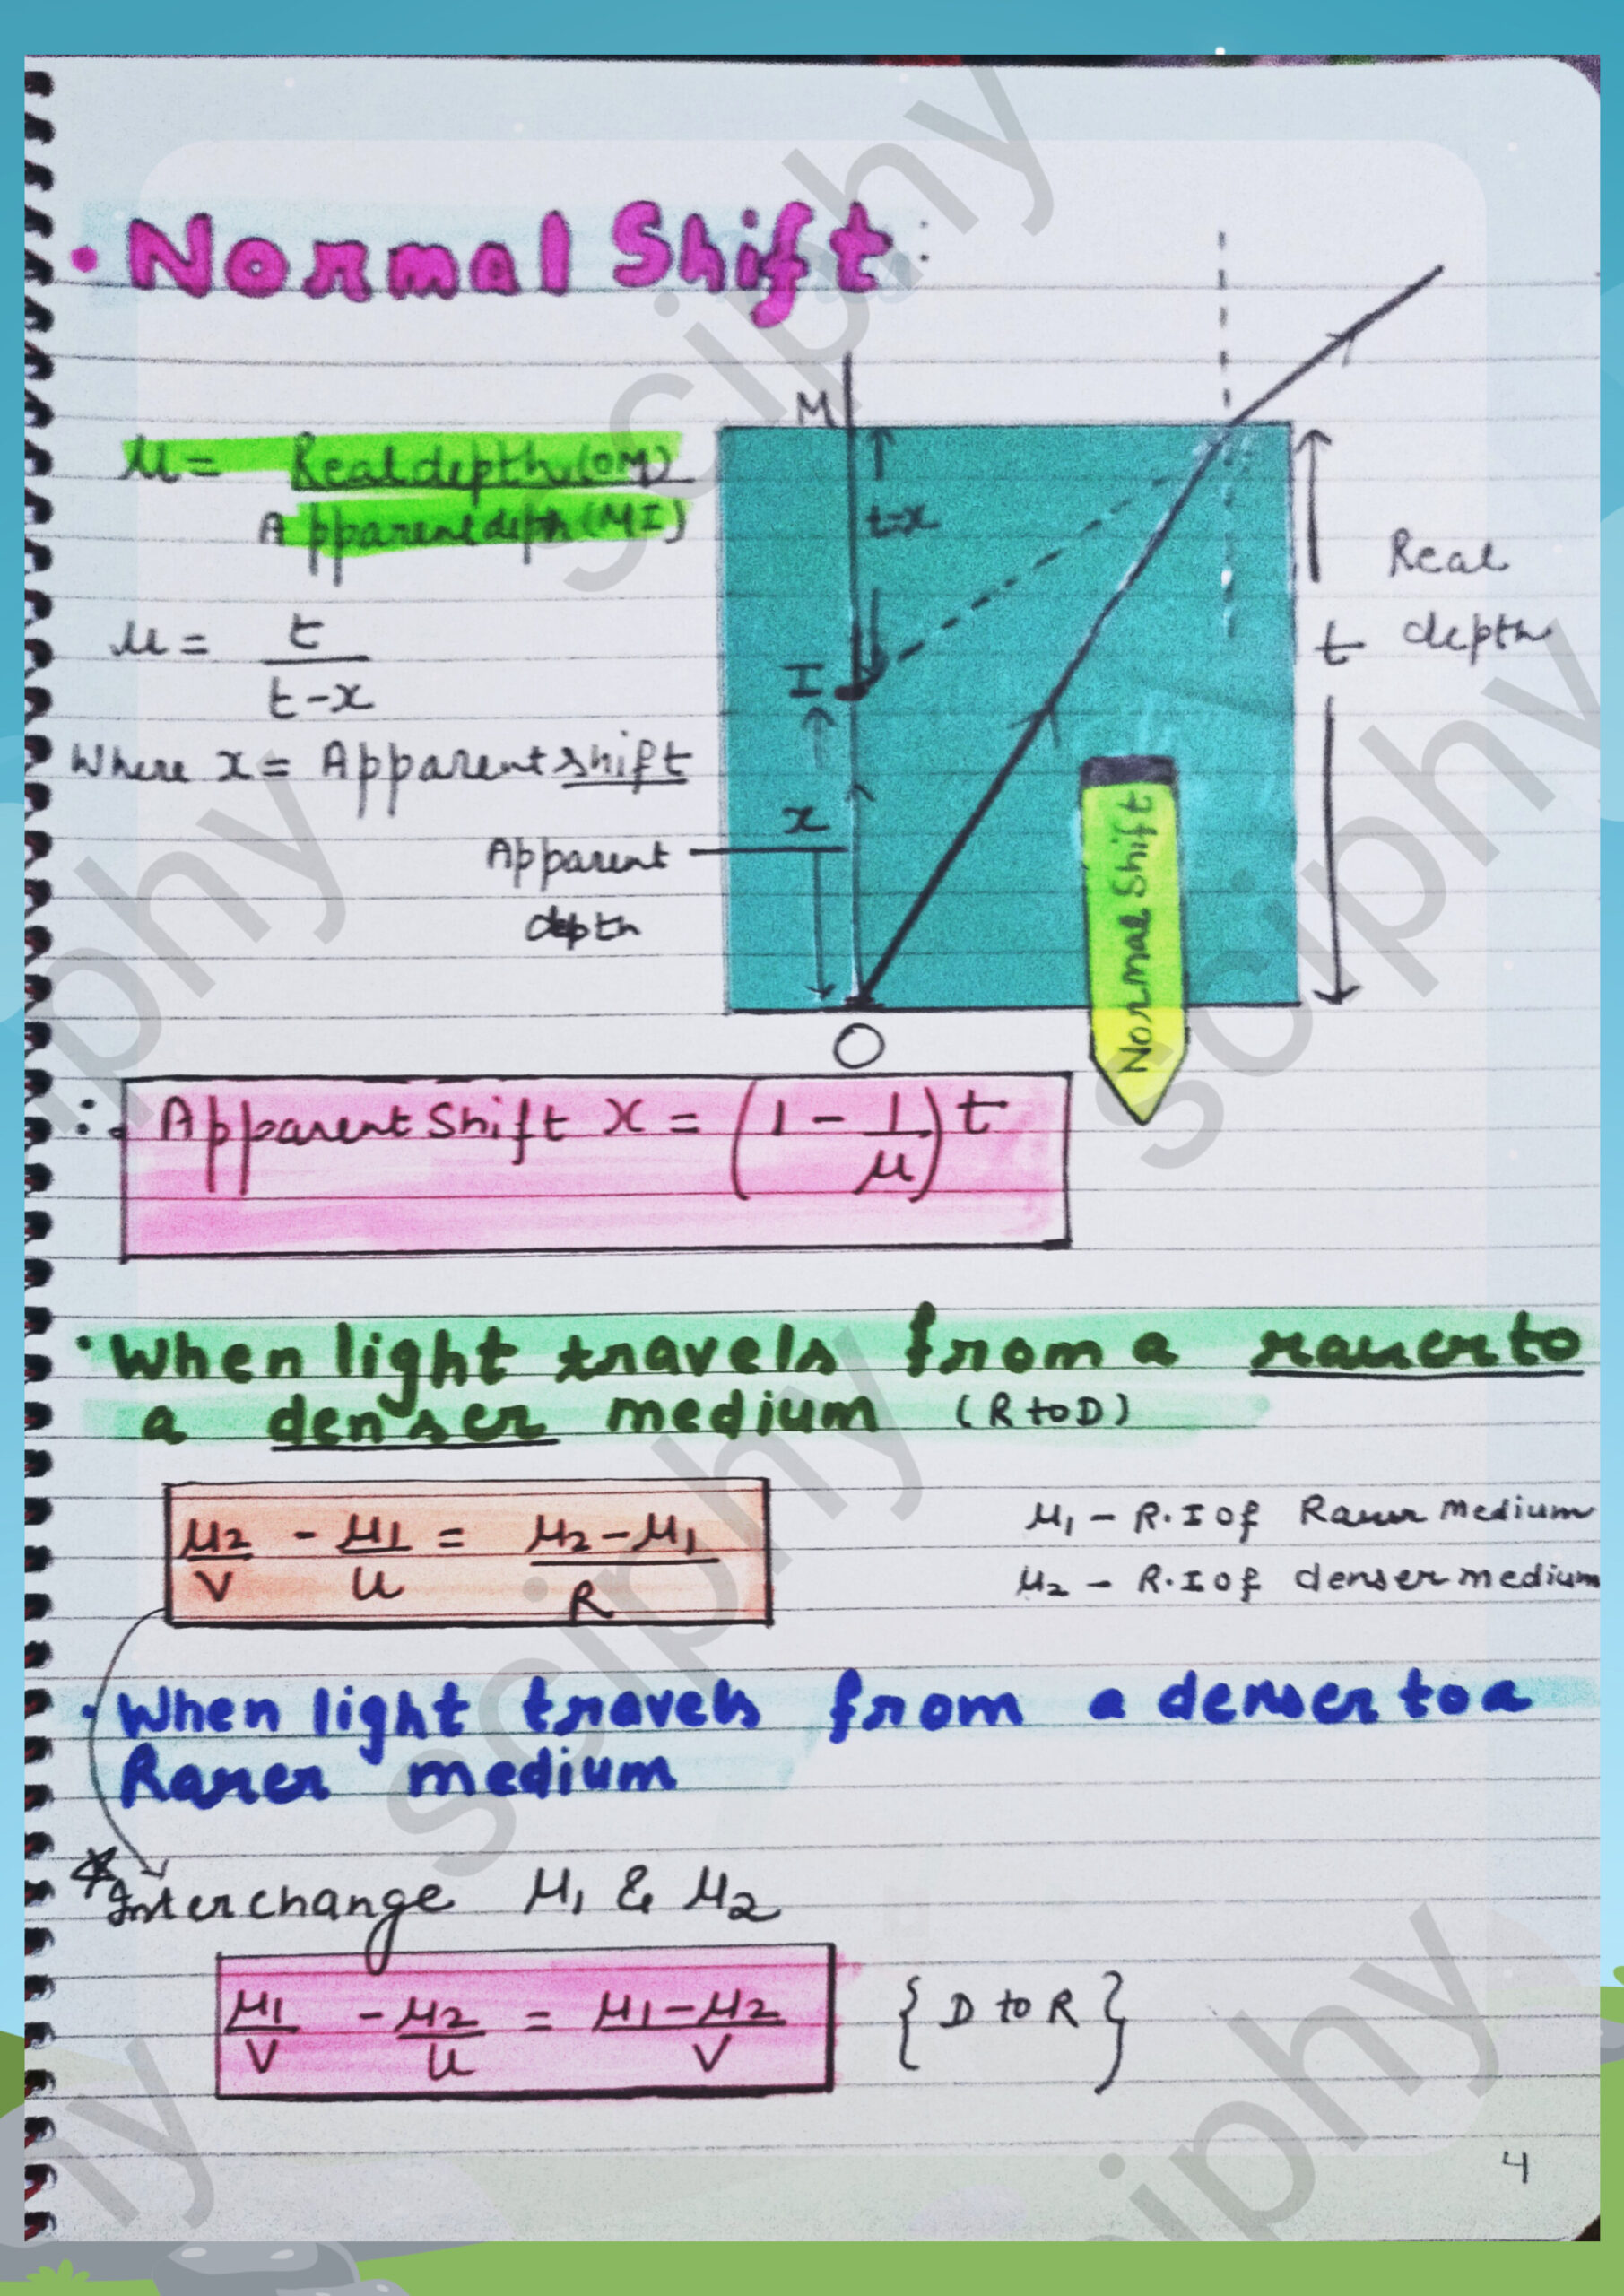 • Normal Shift :
μ = Real depth (OM) / Apparent depth (MI)
μ = t / t-x
Where x = Apparent shift
M
t-x
I
x
Apparent
depth
O
Real
t depth
Normal Shift
∴ Apparent Shift x = (1 - 1/μ) t
• When light travels from a rarer to
a denser medium (R to D)
μ2/V - μ1/u = μ2-μ1/R
μ1 - R.I of Rarer Medium
μ2 - R.I of denser medium
• When light travels from a denser to a
Rarer medium
* Interchange μ1 & μ2
μ1/V - μ2/u = μ1-μ2/V { D to R }
4
sciphy
sciphy
sciphy
sciphy
sciphy